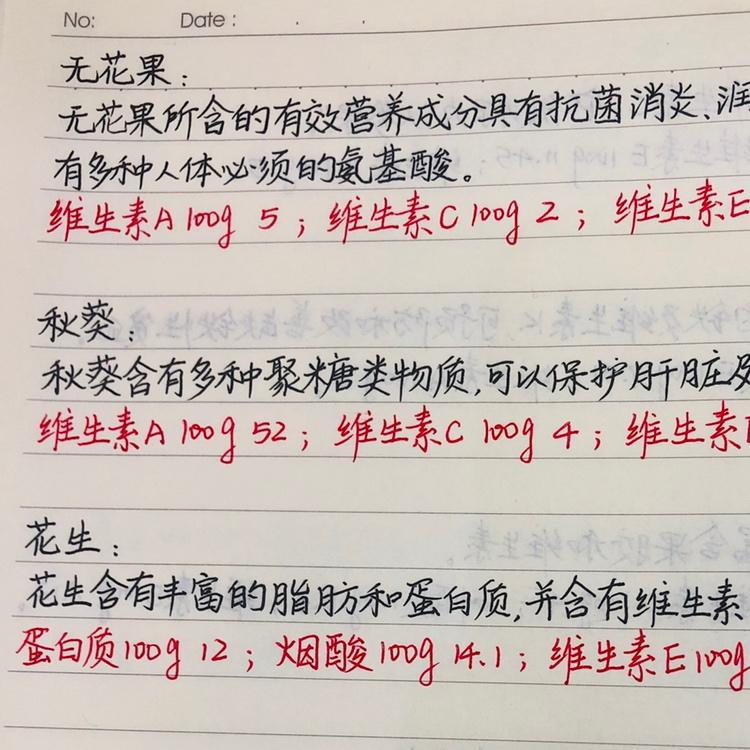 No: Date :
无花果:
无花果所含的有效营养成分具有抗菌消炎、润
有多种人体必须的氨基酸。
维生素A 100g 5；维生素C 100g 2；维生素E
秋葵:
秋葵含有多种聚糖类物质,可以保护肝脏及
维生素A 100g 52；维生素C 100g 4；维生素
花生:
花生含有丰富的脂肪和蛋白质,并含有维生素
蛋白质100g 12；烟酸100g 14.1；维生素E 100g